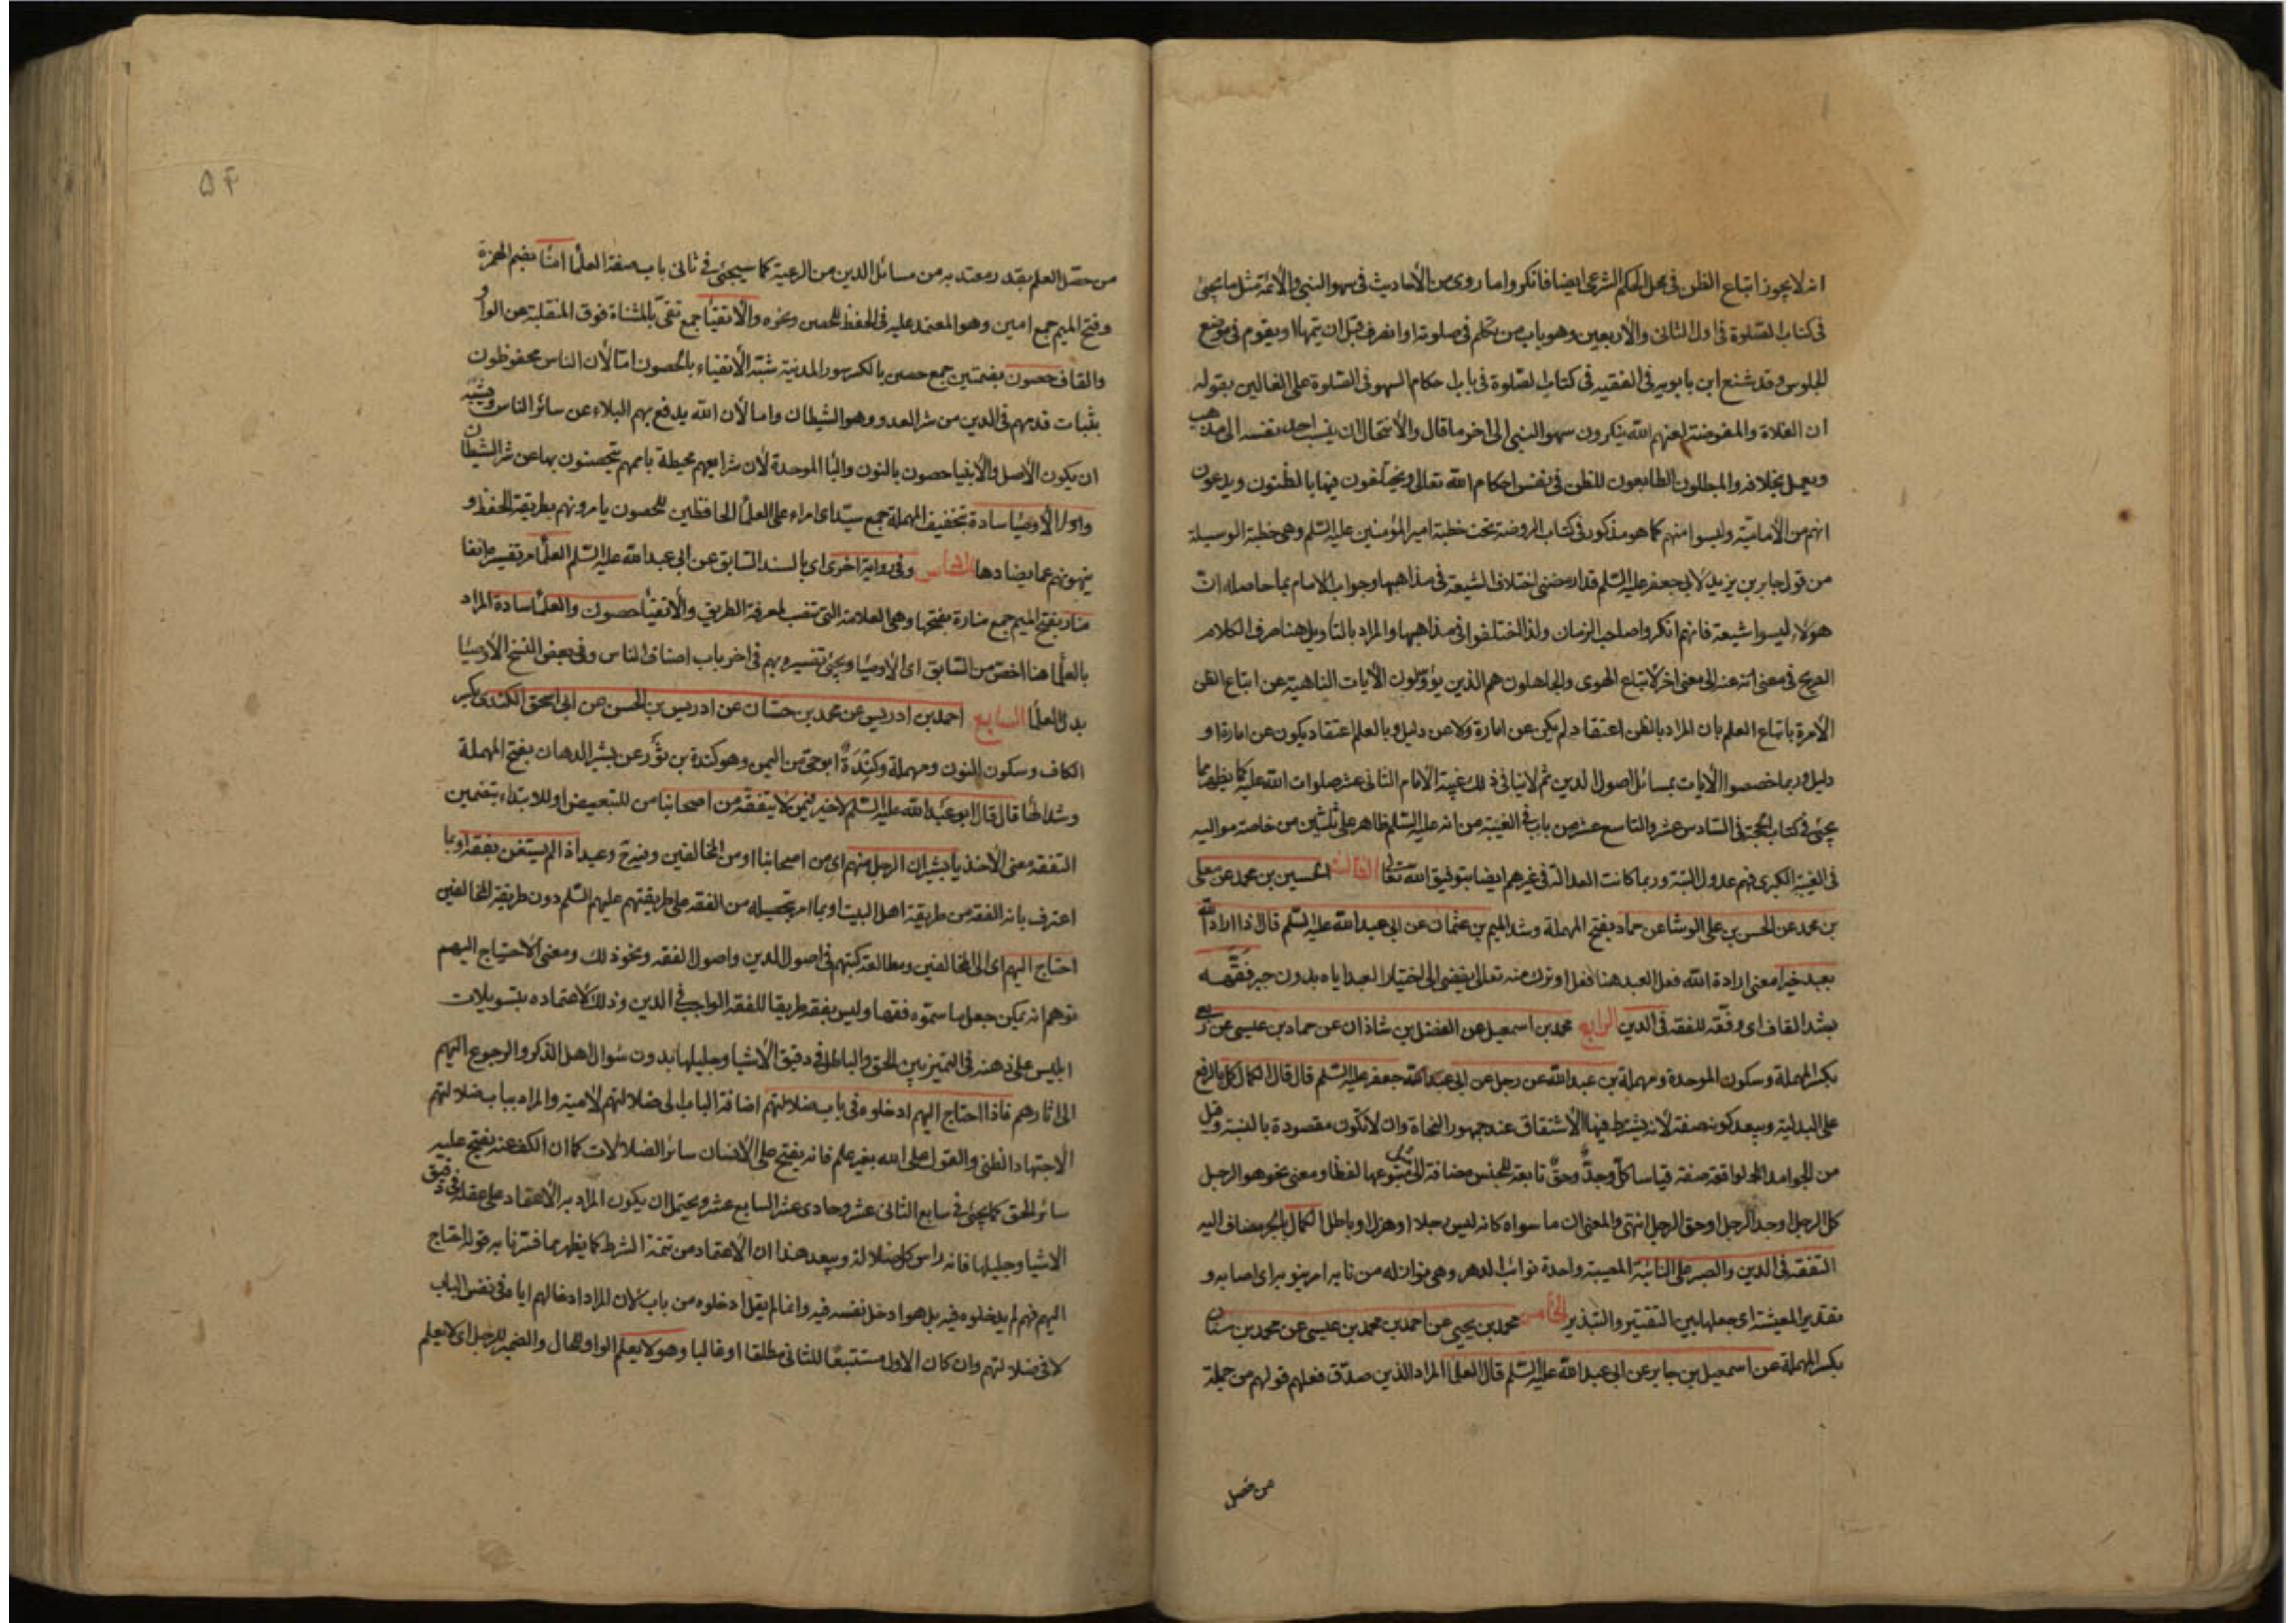 انه لا يجوز اتباع الظن في محل الحكم الشرعي ايضا فانكروا ما روي من الأحاديث في سهو النبي والأئمة مثل ما يجئ
في كتاب الصلوة في اول الثاني والأربعين وهو باب من تكلم في صلوته او انصرف قبل ان يتمها او يقوم في موضع
الجلوس وقد شنع ابن بابويه في الفقيه في كتاب الصلوة في باب احكام السهو في الصلوة على الغالين بقوله
ان الغلاة والمفوضة لعنهم الله ينكرون سهو النبي الى اخر ما قال والأنتحال ان ينسب احد نفسه الى مذهب
ويعمل بخلافه والمبطلون التابعون للظن في نفس احكام الله تعالى ويختلفون فيها بالظنون ويدعون
انهم من الأمامية وليسوا منهم كما هو مذكور في كتاب الروضة تحت خطبة امير المؤمنين عليه السلم وهي خطبة الوسيلة
من قول جابر بن يزيد لابي جعفر عليه السلم قد ارمضني اختلاف الشيعة في مذاهبها وجواب الامام بما حاصله ان
هولاء ليسوا شيعة فانهم انكروا صاحب الزمان ولذا اختلفوا في مذاهبها والمراد بالتأويل هنا صرف الكلام
الصريح في معنى انه عنه الى معنى اخر لاتباع الهوى والجاهلون هم الذين يؤولون الأيات الناهية عن اتباع الظن
الأمرة باتباع العلم بان المراد بالظن اعتقاد لم يكن عن امارة ولا عن دليل وبالعلم اعتقاد يكون عن امارة او
دليل وربما خصصوا الأيات بمسائل اصول الدين ثم لا ينافي ذلك غيبة الامام الثاني عشر صلوات الله عليه كما يظهر مما
يجئ في كتاب الحجة في السادس عشر والتاسع عشر من باب في الغيبة من انه عليه السلم ظاهر على ثلثين من خاصة مواليه
في الغيبة الكبرى فهم عدول البتة وربما كانت العدالة في غيرهم ايضا بتوفيق الله تعالى الثالث الحسين بن محمد عن معلى
بن محمد عن الحسن بن علي الوشا عن حماد بفتح المهملة وشد الميم بن عثمان عن ابي عبد الله عليه السلم قال اذا اراد الله
بعبد خيرا معنى ارادة الله فعل العبد هنا فعل او ترك منه تعالى يفضي الى اختيار العبد اياه بدون جبر فقهه
بشد القاف اي وفقه للفقه في الدين الرابع محمد بن اسمعيل عن الفضل بن شاذان عن حماد بن عيسى عن ربعي
بكسر المهملة وسكون الموحدة ومهملة بن عبد الله عن رجل عن ابي عبد الله جعفر عليه السلم قال قال الكمال كل بالرفع
على البدلية ويبعد كونه صفة لأنه يشترط فيها الأشتقاق عند جمهور النحاة وان لا تكون مقصودة بالنسبة وقيل
من الجوامد الواقعة صفة قياسا كل وجد وحق تابعة للجنس مضافة الى مثل متبوعها لفظا ومعنى نحو هو الرجل
كل الرجل او جد الرجل او حق الرجل انتهى والمعنى ان ما سواه كانه ليس رجلا او هزل او باطل الكمال بالجر مضاف اليه
التفقه في الدين والصبر على النائبة المصيبة واحدة نوائب الدهر وهي نوازله من نابه امر ينوبه اي اصابه و
تقدير المعيشة اي جعلها بين التقتير والتبذير الخامس محمد بن يحيى عن احمد بن محمد بن عيسى عن محمد بن سنان
بكسر المهملة عن اسمعيل بن جابر عن ابي عبد الله عليه السلم قال العلما المراد الذين صدق فعلهم قولهم من جملة
من حصل
۵۴
من حصل العلم بقدر معتد به من مسائل الدين من الرعية كما سيجئ في ثاني باب صفة العلما امنا بضم الهمزة
وفتح الميم جمع امين وهو المعتمد عليه في الحفظ للحصن ونحوه والأتقيا جمع تقي بالمثناة فوق المنقلبة عن الواو
والقاف حصون بضمتين جمع حصن بالكسر سور المدينة شبه الأتقياء بالحصون اما لأن الناس محفوظون
بثبات قدمهم في الدين من شر العدو وهو الشيطان واما لأن الله يدفع بهم البلاء عن سائر الناس ويشبه
ان يكون الأصل والأنبيا حصون بالنون والبا الموحدة لأن شرايعهم محيطة باممهم يتحصنون بها عن شر الشيطان
واولا الأوصيا سادة بتخفيف المهملة جمع سيد اي امراء على العلما الحافظين للحصون يامرونهم بطريقة الحفظ و
ينهونهم عما يضادها السادس وفي رواية اخرى اي بالسند السابق عن ابي عبد الله عليه السلم العلما مر تفسيره انفا
منار بفتح الميم جمع منارة بفتحها وهي العلامة التي تنصب لمعرفة الطريق والأتقيا حصون والعلما سادة المراد
بالعلما هنا اخص من السابق اي الأوصيا ويجئ تفسيره بهم في اخر باب اصناف الناس وفي بعض النسخ الأوصيا
بدل العلما السابع احمد بن ادريس عن محمد بن حسان عن ادريس بن الحسن عن ابي اسحق الكندي بكسر
الكاف وسكون النون ومهملة وكندة ابو حي من اليمن وهو كندة بن ثور عن بشير الدهان بفتح المهملة
وشد الها قال قال ابو عبد الله عليه السلم لا خير فيمن لا يتفقه من اصحابنا من للتبعيض او للابتداء بتضمين
التفقه معنى الأخذ يا بشير ان الرجل منهم اي من اصحابنا او من المخالفين وفيه وعيد اذا لم يستغن بفقهه او بما
اعترف بانه الفقه من طريقة اهل البيت او بما امر بتحصيله من الفقه على طريقتهم عليهم السلم دون طريقة المخالفين
احتاج اليهم اي الى المخالفين ومطالعة كتبهم في اصول الدين واصول الفقه ونحو ذلك ومعنى الأحتياج اليهم
توهم انه يمكن جعل ما سموه فقها وليس بفقه طريقا للفقه الواجب في الدين وذلك لاعتماده بتسويلات
ابليس على ذهنه في التميز بين الحق والباطل في دقيق الأشيا وجليلها بدون سؤال اهل الذكر والرجوع اليهم
الى اثارهم فاذا احتاج اليهم ادخلوه في باب ضلالتهم اضافة الباب الى ضلالتهم لامية والمراد بباب ضلالتهم
الأجتهاد الظني والقول على الله بغير علم فانه يفتح على الأنسان سائر الضلالات كما ان الكف عنه يفتح عليه
سائر الحق كما يجئ في سابع الثاني عشر وحادي عشر السابع عشر ويحتمل ان يكون المراد به الأعتماد على عقله في دقيق
الاشيا وجليلها فانه راس كل ضلالة ويبعد هذا ان الأعتماد من تتمة الشرط كما يظهر مما فسرنا به قوله احتاج
اليهم فهم لم يدخلوه فيه بل هو ادخل نفسه فيه وانما لم يقل ادخلوه من باب لان المراد ادخالهم اياه في نفس الباب
لا في ضلالتهم وان كان الاول مستتبعا للثاني مطلقا او غالبا وهو لا يعلم الواو للحال والضمير للرجل اي لا يعلم